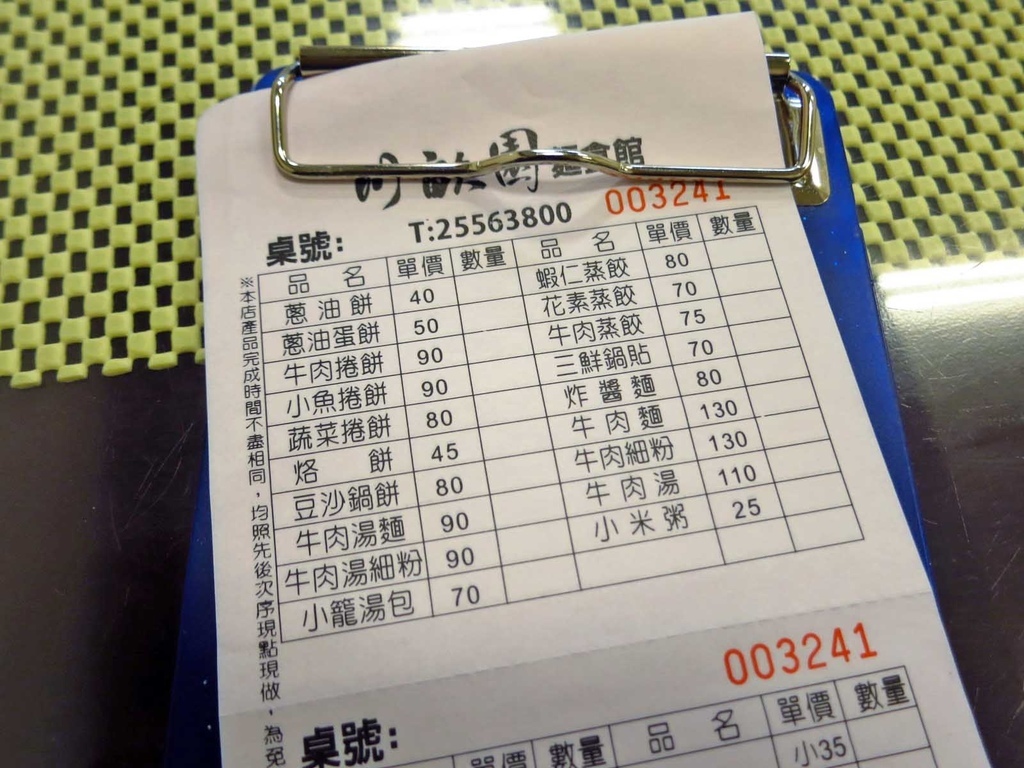 川畝園 麵食館
003241
T:25563800
桌號:
品 名 單價 數量 品 名 單價 數量
蔥油餅 40 蝦仁蒸餃 80
蔥油蛋餅 50 花素蒸餃 70
牛肉捲餅 90 牛肉蒸餃 75
小魚捲餅 90 三鮮鍋貼 70
蔬菜捲餅 80 炸醬麵 80
烙 餅 45 牛肉麵 130
豆沙鍋餅 80 牛肉細粉 130
牛肉湯麵 90 牛肉湯 110
牛肉湯細粉 90 小米粥 25
小籠湯包 70
※本店產品完成時間不盡相同，均照先後次序現點現做，為免
003241
桌號:
單價 數量 品 名 單價 數量
小35